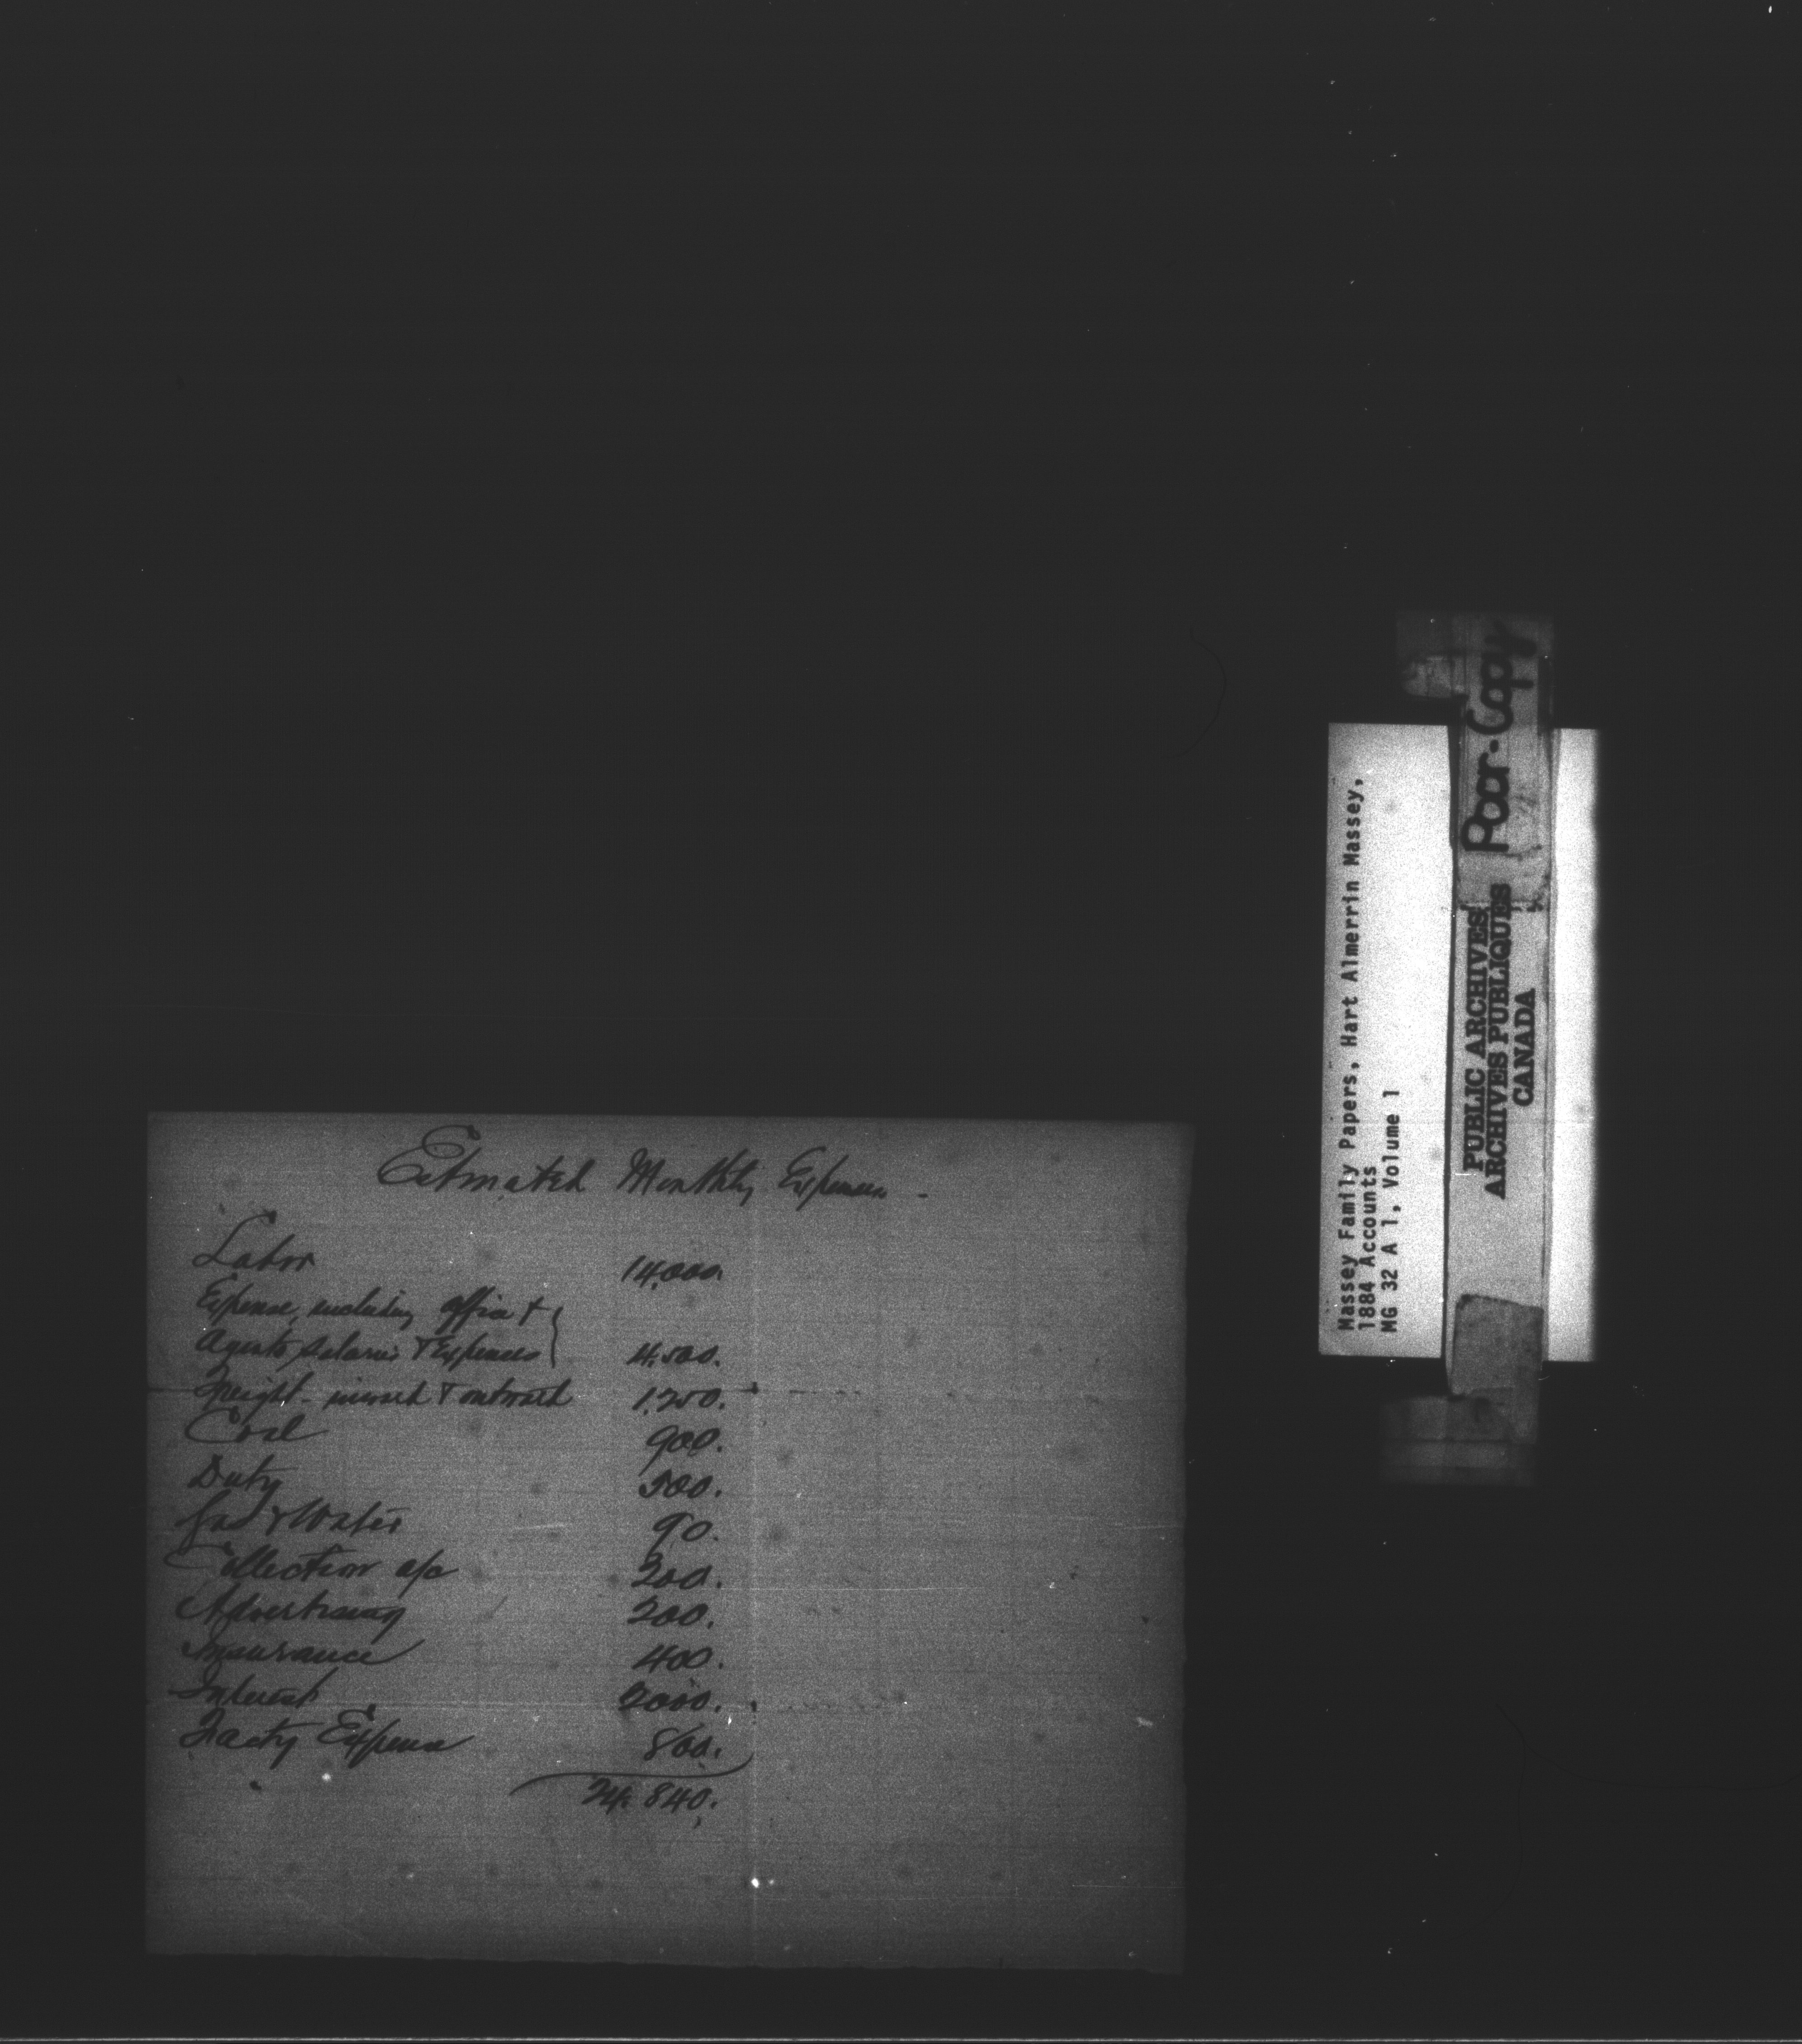 Estimated Monthly Expenses.
Labor 14,000.
Expense, including office &
Agents salaries & Expenses 4,500.
Freight - inward & outward 1,250.
Coal 900.
Duty 500.
Gas & Water 90.
Collection a/c 200.
Advertising 200.
Insurance 400.
Interest 2000.
Facty Expense 800.
24,840.
Massey Family Papers, Hart Almerrin Massey,
1884 Accounts
MG 32 A 1, Volume 1
PUBLIC ARCHIVES
ARCHIVES PUBLIQUES
CANADA
Poor-Copy